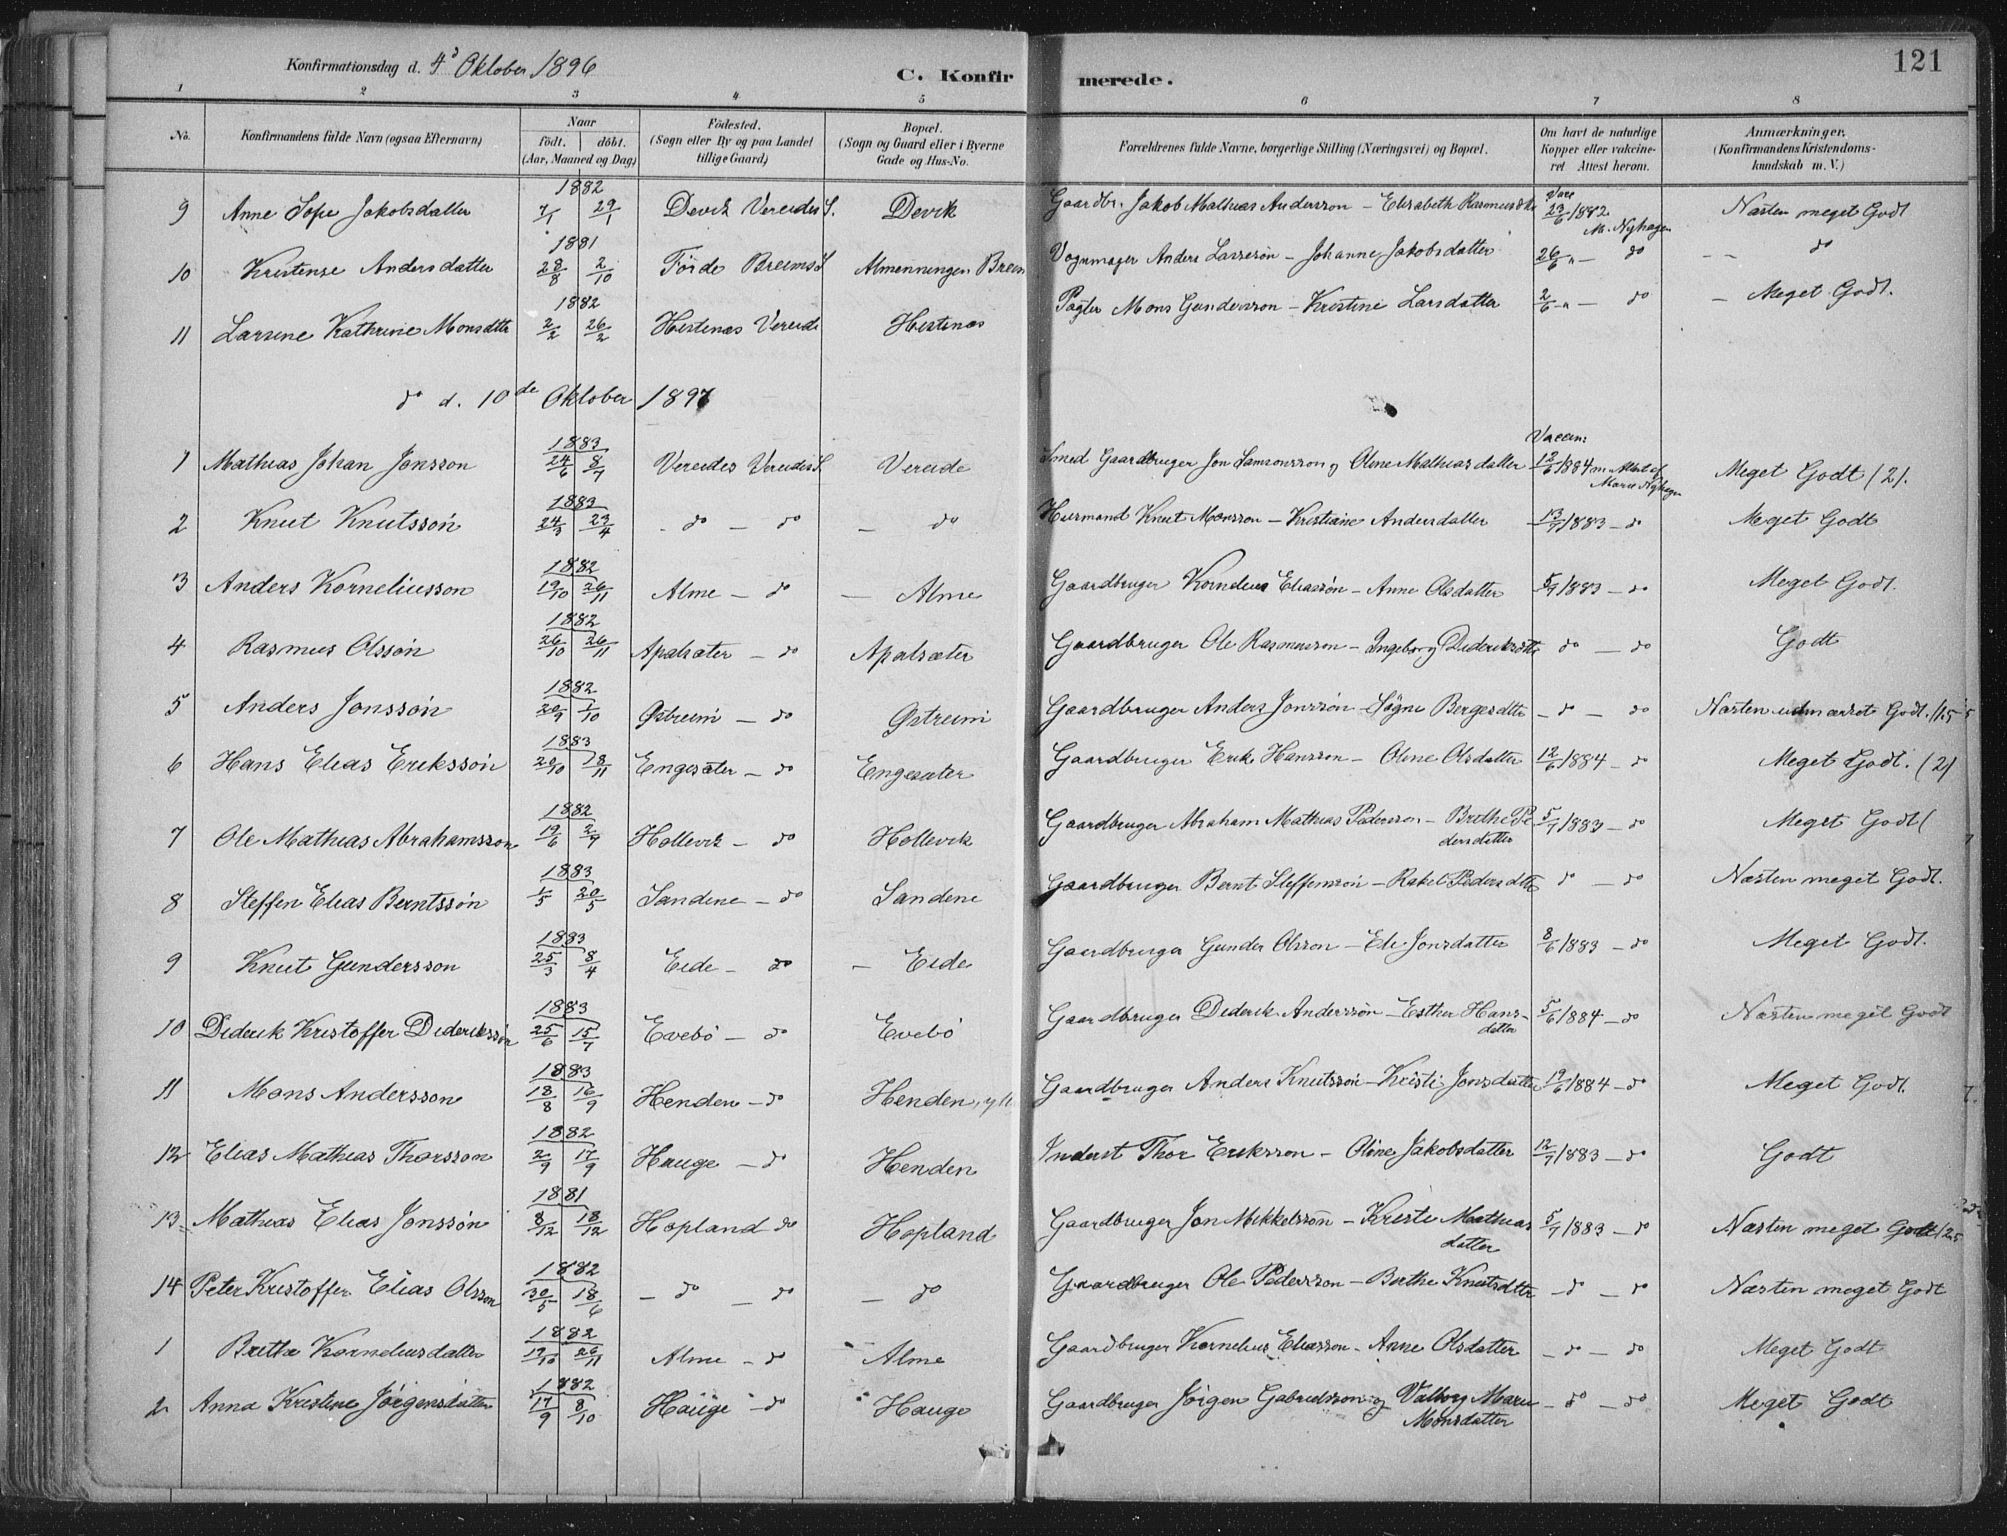 Konfirmationsdag d. 4d Oktober 1896
C. Konfirmerede.
121
1 2 3 4 5 6 7 8
No. Konfirmandens fulde Navn (ogsaa Efternavn) Naar födt. döbt. (Aar, Maaned og Dag) Födested. (Sogn eller By og paa Landet tillige Gaard) Bopæl. (Sogn og Gaard eller i Byerne Gade og Hus-No. Forældrenes fulde Navne, borgerlige Stilling (Næringsvei) og Bopæl. Om havt de naturlige Kopper eller vakcineret Attest herom. Anmærkninger. (Konfirmandens Kristendomskundskab m. V.)
9 Anne Sofie Jakobsdatter 1882 7/1 29/1 Devik Vereides S. Devik Gaardbr. Jakob Mathias Andersson - Elisabeth Rasmusdtr Vacc 23/6 1882 M. Nyhagen Næsten meget Godt
10 Kristense Andersdatter 1881 28/8 2/10 Förde Breims S Almenningen Breim Vognmager Anders Larssön - Johanne Jakobsdatter 26/6 " - do - - do
11 Larsine Kathrine Monsdtr 1882 2/2 26/2 Hestenæs Vereide Hestenæs Pagter Mons Gundersson - Kristine Larsdatter 2/6 " - do - Meget Godt.
do d. 10de Oktober 1897
1 Mathias Johan Jonsson 1883 24/6 8/7 Vereides Vereides S. Vereide Smed Gaardbruger Jon Samsonsson og Oline Mathiasdatter Vaccin: 12/6 1884 m. Attest af Marie Nyhagen Meget Godt (2).
2 Knut Knutssön 1883 24/3 23/4 - do - do - do Huusmand Knut Monsson - Kristiane Andersdatter 13/7 1883 - do Meget Godt
3 Anders Korneliusson 1882 19/10 26/11 Alme - do - Alme Gaardbruger Kornelius Eliassön - Anne Olsdatter 5/7 1883 - do Meget Godt.
4 Rasmus Olssön 1882 26/10 26/11 Apalsæter - do Apalsæter Gaardbruger Ole Rasmusson - Ingeborg Dideriksdtr do - do Godt
5 Anders Jonssön 1882 20/9 1/10 Østreim - do Østreim Gaardbruger Anders Jonssön - Sögni Bergesdtr - do - do Næsten udmærket Godt. (1.5
6 Hans Elias Erikssön 1883 20/10 18/11 Engesæter - do Engesæter Gaardbruger Erik Hansson - Oline Olsdatter 12/6 1884 - do Meget Godt. (2)
7 Ole Mathias Abrahamsson 1882 19/6 2/9 Hollevik - do Hollevik Gaardbruger Abraham Mathias Pedersson - Brithe Pedersdatter 5/7 1883 - do Meget Godt
8 Steffen Elias Berntssön 1883 1/5 20/5 Sandene - do Sandene Gaardbruger Bernt Steffenssön - Rakel Pedersdtr do - do Næsten meget Godt.
9 Knut Gundersson 1883 25/3 8/4 Eide - do - Eide Gaardbruger Gunder Olsson - Eli Jonsdatter 8/6 1883 - do Meget Godt.
10 Diderik Kristoffer Diderikssön 1883 25/6 15/7 Evebö - do Evebö Gaardbruger Diderik Anderssön - Esther Hansdatter 5/6 1884 - do Næsten meget Godt
11 Mons Andersson 1883 18/8 16/9 Henden - do Henden, ytr. Gaardbruger Anders Knutssön - Kristi Jonsdatter 19/6 1884 - do Meget Godt.
12 Elias Mathias Thorsson 1882 2/9 17/9 Hauge - do Henden Inderst Thor Eriksson - Oline Jakobsdatter 12/7 1883 - do Godt
13 Mathias Elias Jonssön 1881 8/12 18/12 Hopland do Hopland Gaardbruger Jon Mikkelssön - Kristi Mathiasdatter 5/7 1883 - do Næsten meget Godt (2.5
14 Peter Kristoffer Elias Olsson 1882 30/5 18/6 - do - do - do Gaardbruger Ole Pedersson - Berthe Knutsdatter - do - do Næsten meget Godt
1 Brithe Korneliusdatter 1882 19/10 26/11 Alme - do Alme Gaardbruger Kornelius Eliasson - Anne Olsdatter - do - do Meget Godt
2 Anna Kristine Jörgensdatter 1882 17/9 8/10 Hauge - do Hauge Gaardbruger Jörgen Gabrielsson og Valborg Marie Monsdatter - do - do Meget Godt